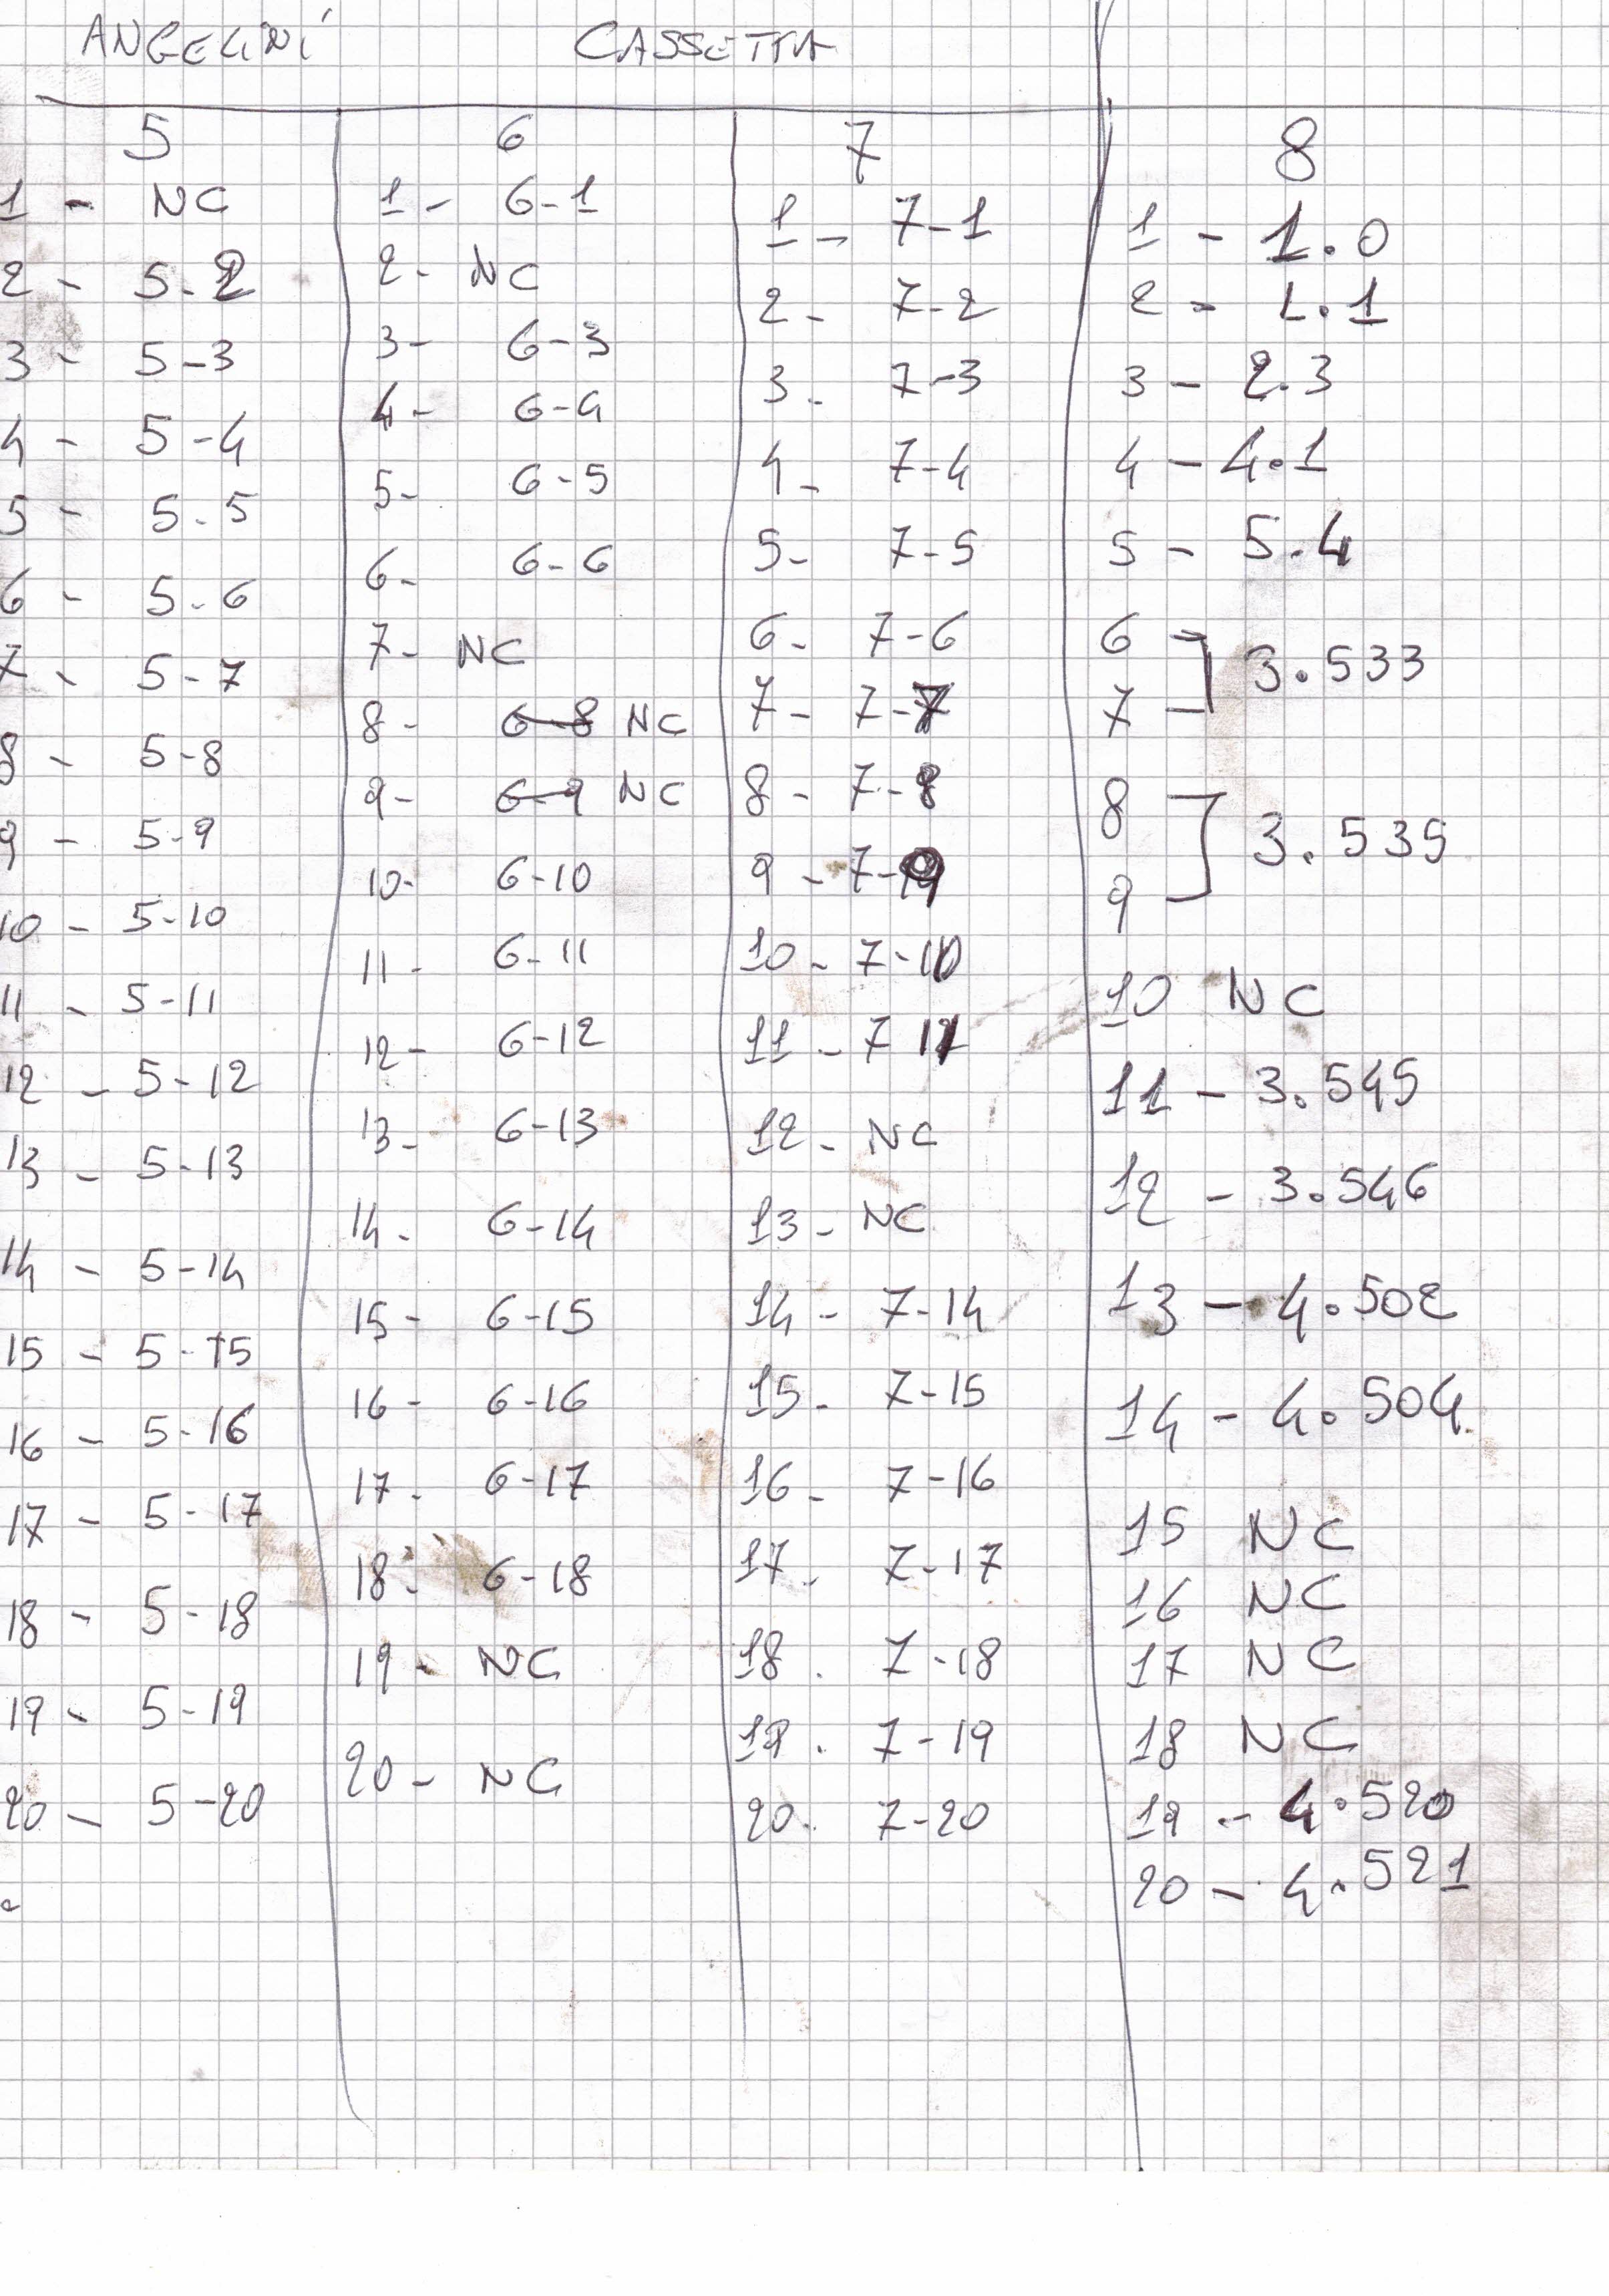 ANGELINI CASSETTA
5
1 - NC
2 - 5-2
3 - 5-3
4 - 5-4
5 - 5-5
6 - 5-6
7 - 5-7
8 - 5-8
9 - 5-9
10 - 5-10
11 - 5-11
12 - 5-12
13 - 5-13
14 - 5-14
15 - 5-15
16 - 5-16
17 - 5-17
18 - 5-18
19 - 5-19
20 - 5-20
6
1 - 6-1
2 - NC
3 - 6-3
4 - 6-4
5 - 6-5
6 - 6-6
7 - NC
8 - 6-8 NC
9 - 6-9 NC
10 - 6-10
11 - 6-11
12 - 6-12
13 - 6-13
14 - 6-14
15 - 6-15
16 - 6-16
17 - 6-17
18 - 6-18
19 - NC
20 - NC
7
1 - 7-1
2 - 7-2
3 - 7-3
4 - 7-4
5 - 7-5
6 - 7-6
7 - 7-7
8 - 7-8
9 - 7-9
10 - 7-10
11 - 7 11
12 - NC
13 - NC
14 - 7-14
15 - 7-15
16 - 7-16
17 - 7-17
18 - 7-18
19 - 7-19
20 - 7-20
8
1 - 1.0
2 - 1.1
3 - 2.3
4 - 4.1
5 - 5.4
6
7 ] 3.533
8
9 ] 3.535
10 NC
11 - 3.545
12 - 3.546
13 - 4.502
14 - 4.504
15 NC
16 NC
17 NC
18 NC
19 - 4.520
20 - 4.521